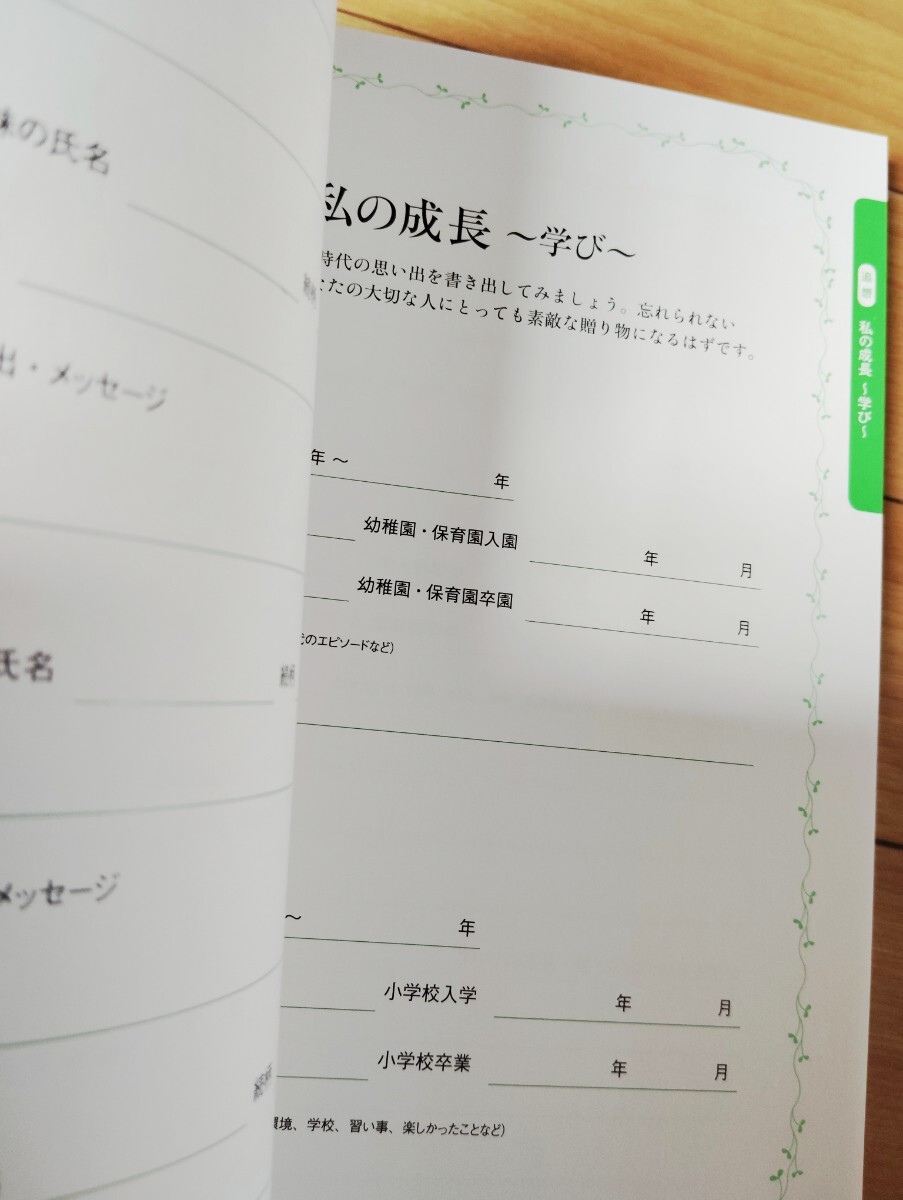 の氏名
出・メッセージ
氏名
メッセージ
私の成長 〜学び〜
時代の思い出を書き出してみましょう。忘れられない
たの大切な人にとっても素敵な贈り物になるはずです。
年 〜 年
幼稚園・保育園入園 年 月
幼稚園・保育園卒園 年 月
のエピソードなど）
〜 年
小学校入学 年 月
小学校卒業 年 月
環境、学校、習い事、楽しかったことなど）
私の成長 〜学び〜